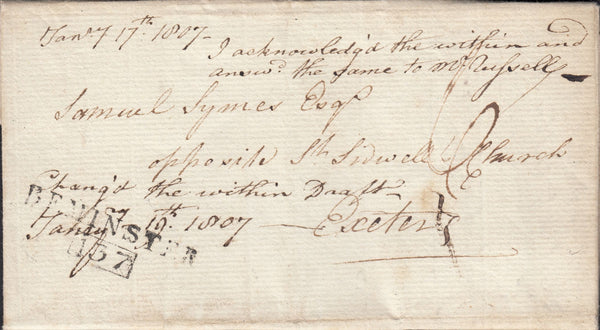 Janry 17th: 1807-
I acknowledg'd the within and
answd. the same to Mr Russell
Samuel Symes Esqr
opposite St Sidwell Church
Chang'd the within Draft
Janry 19th. 1807
Exeter
BEMINSTER
157